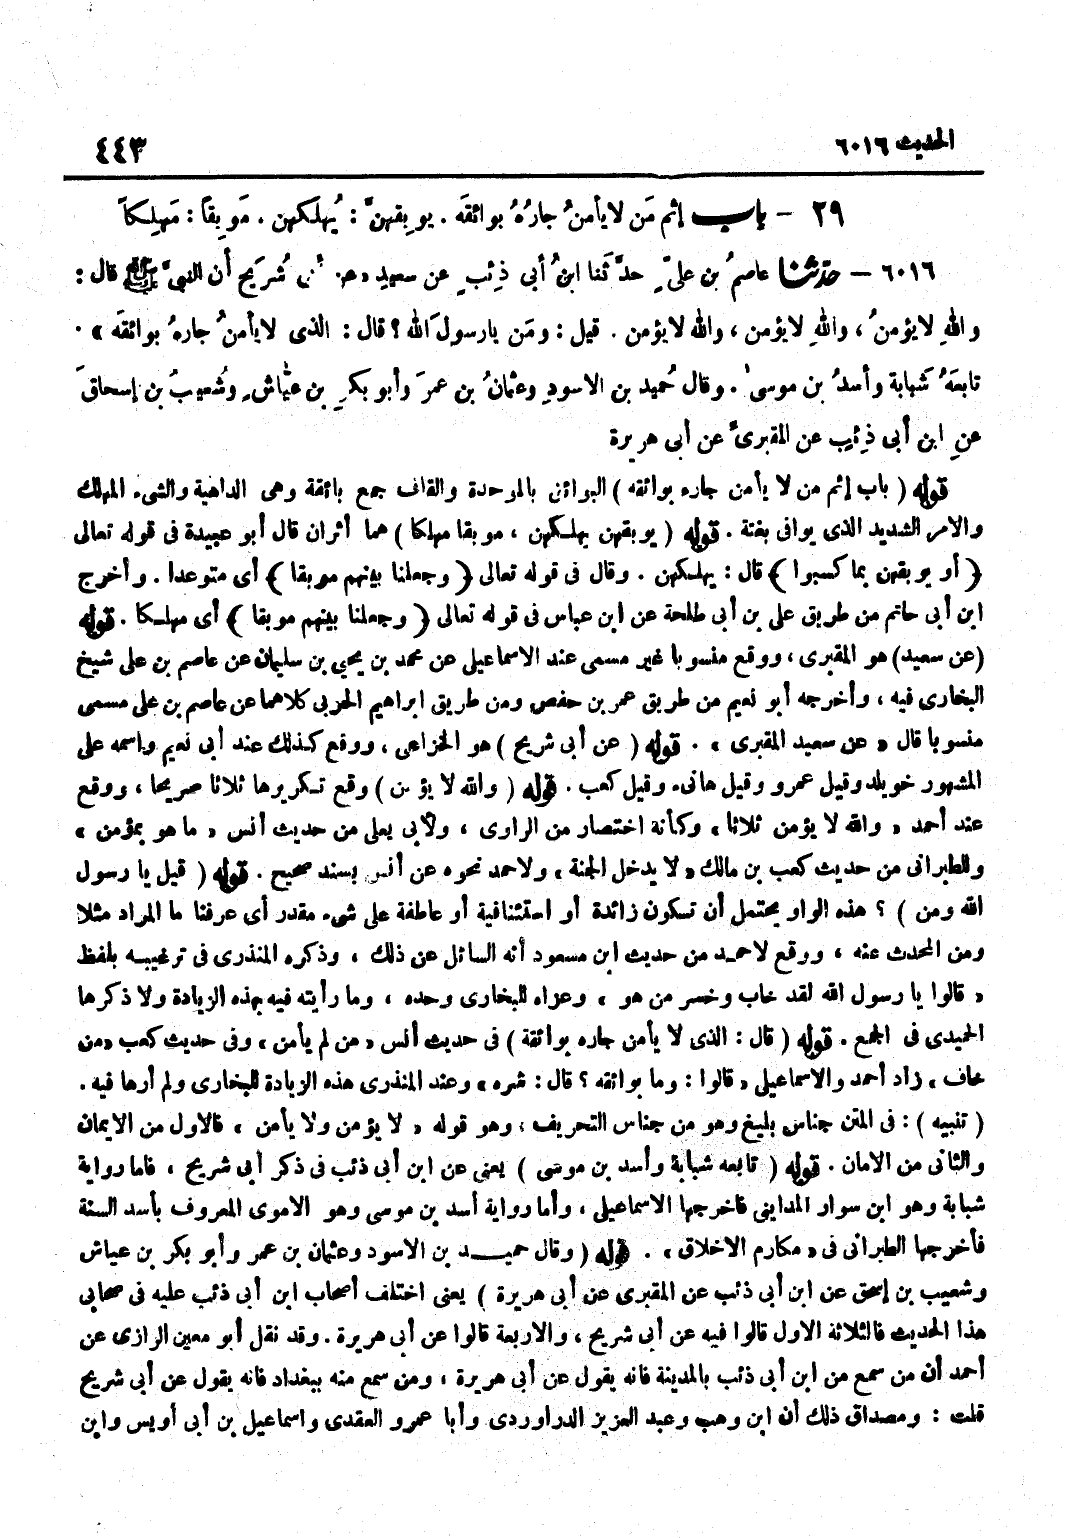 الحديث ٦٠١٦
٤٤٣
٢٩ - باب إثم مَن لا يأمنُ جارُهُ بوائقَه . يوبِقهنَّ : يُهلكهن . مَوبِقاً : مَهلِكاً
٦٠١٦ - حدّثنا عاصمُ بن عليٍّ حدَّثَنا ابنُ أبي ذِئبٍ عن سعيدٍ «عن أبي شُرَيح أن النبيَّ ﷺ قال :
واللهِ لا يؤمنُ ، واللهِ لا يؤمن ، واللهِ لا يؤمن . قيل : ومَن يا رسولَ الله ؟ قال : الذي لا يأمنُ جارهُ بوائقَه » .
تابعَهُ شَبابة وأسدُ بن موسىٰ . وقال حُميد بن الاسودِ وعثمانُ بن عمرَ وأبو بكرِ بن عيّاشٍ وشُعيبُ بن إسحاقَ
عنِ ابن أبي ذِئبٍ عن المقبريِّ عن أبي هريرة
قوله ( باب إثم من لا يأمن جاره بوائقه ) البوائق بالموحدة والقاف جمع بائقة وهى الداهية والشىء المهلك
والامر الشديد الذى يوافى بغتة . قوله ( يوبقهن يهلكهن ، موبقا مهلكا ) هما أثران قال أبو عبيدة فى قوله تعالى
﴿ أو يوبقهن بما كسبوا ﴾ قال : يهلكهن . وقال فى قوله تعالى ﴿ وجعلنا بينهم موبقا ﴾ أى متوعدا . وأخرج
ابن أبى حاتم من طريق على بن أبى طلحة عن ابن عباس فى قوله تعالى ﴿ وجعلنا بينهم موبقا ﴾ أى مهلكا . قوله
(عن سعيد) هو المقبرى ، ووقع منسوبا غير مسمى عند الاسماعيلى عن محمد بن يحيى بن سليمان عن عاصم بن على شيخ
البخارى فيه ، وأخرجه أبو نعيم من طريق عمر بن حفص ومن طريق ابراهيم الحربى كلاهما عن عاصم بن على مسمى
منسوبا قال « عن سعيد المقبرى » . قوله ( عن أبى شريح ) هو الخزاعى ، ووقع كذلك عند أبى نعيم واسمه على
المشهور خويلد وقيل عمرو وقيل هانىء وقيل كعب . قوله ( والله لا يؤمن ) وقع تكريرها ثلاثا صريحا ، ووقع
عند أحمد « والله لا يؤمن ثلاثا » وكأنه اختصار من الراوى ، ولأبى يعلى من حديث أنس « ما هو بمؤمن »
وللطبرانى من حديث كعب بن مالك « لا يدخل الجنة » ولاحمد نحوه عن أنس بسند صحيح . قوله ( قيل يا رسول
الله ومن ) ؟ هذه الواو يحتمل أن تكون زائدة أو استئنافية أو عاطفة على شىء مقدر أى عرفنا ما المراد مثلا
ومن المحدث عنه ، ووقع لاحمد من حديث ابن مسعود أنه السائل عن ذلك ، وذكره المنذرى فى ترغيبه بلفظ
« قالوا يا رسول الله لقد خاب وخسر من هو » وعزاه للبخارى وحده ، وما رأيته فيه بهذه الزيادة ولا ذكرها
الحميدى فى الجمع . قوله ( قال : الذى لا يأمن جاره بوائقة ) فى حديث أنس « من لم يأمن » وفى حديث كعب «من
خاف » زاد أحمد والاسماعيلى « قالوا : وما بوائقه ؟ قال : شره » وعند المنذرى هذه الزيادة للبخارى ولم أرها فيه .
( تنبيه ) : فى المتن جناس بليغ وهو من جناس التحريف ، وهو قوله « لا يؤمن ولا يأمن » فالاول من الايمان
والثانى من الامان . قوله ( تابعه شبابة وأسد بن موسى ) يعنى عن ابن أبى ذئب فى ذكر أبى شريح ، فاما رواية
شبابة وهو ابن سوار المداينى فاخرجها الاسماعيلى ، وأما رواية أسد بن موسى وهو الاموى المعروف بأسد السنة
فأخرجها الطبرانى فى « مكارم الاخلاق » . قوله ( وقال حميد بن الاسود وعثمان بن عمر وأبو بكر بن عياش
وشعيب بن إسحق عن ابن أبى ذئب عن المقبرى عن أبى هريرة ) يعنى اختلف أصحاب ابن أبى ذئب عليه فى صحابى
هذا الحديث فالثلاثة الاول قالوا فيه عن أبى شريح ، والاربعة قالوا عن أبى هريرة . وقد نقل أبو معين الرازى عن
أحمد أن من سمع من ابن أبى ذئب بالمدينة فانه يقول عن أبى هريرة ، ومن سمع منه ببغداد فانه يقول عن أبى شريح
قلت : ومصداق ذلك أن ابن وهب وعبد العزيز الدراوردى وأبا عمرو العقدى واسماعيل بن أبى أويس وابن